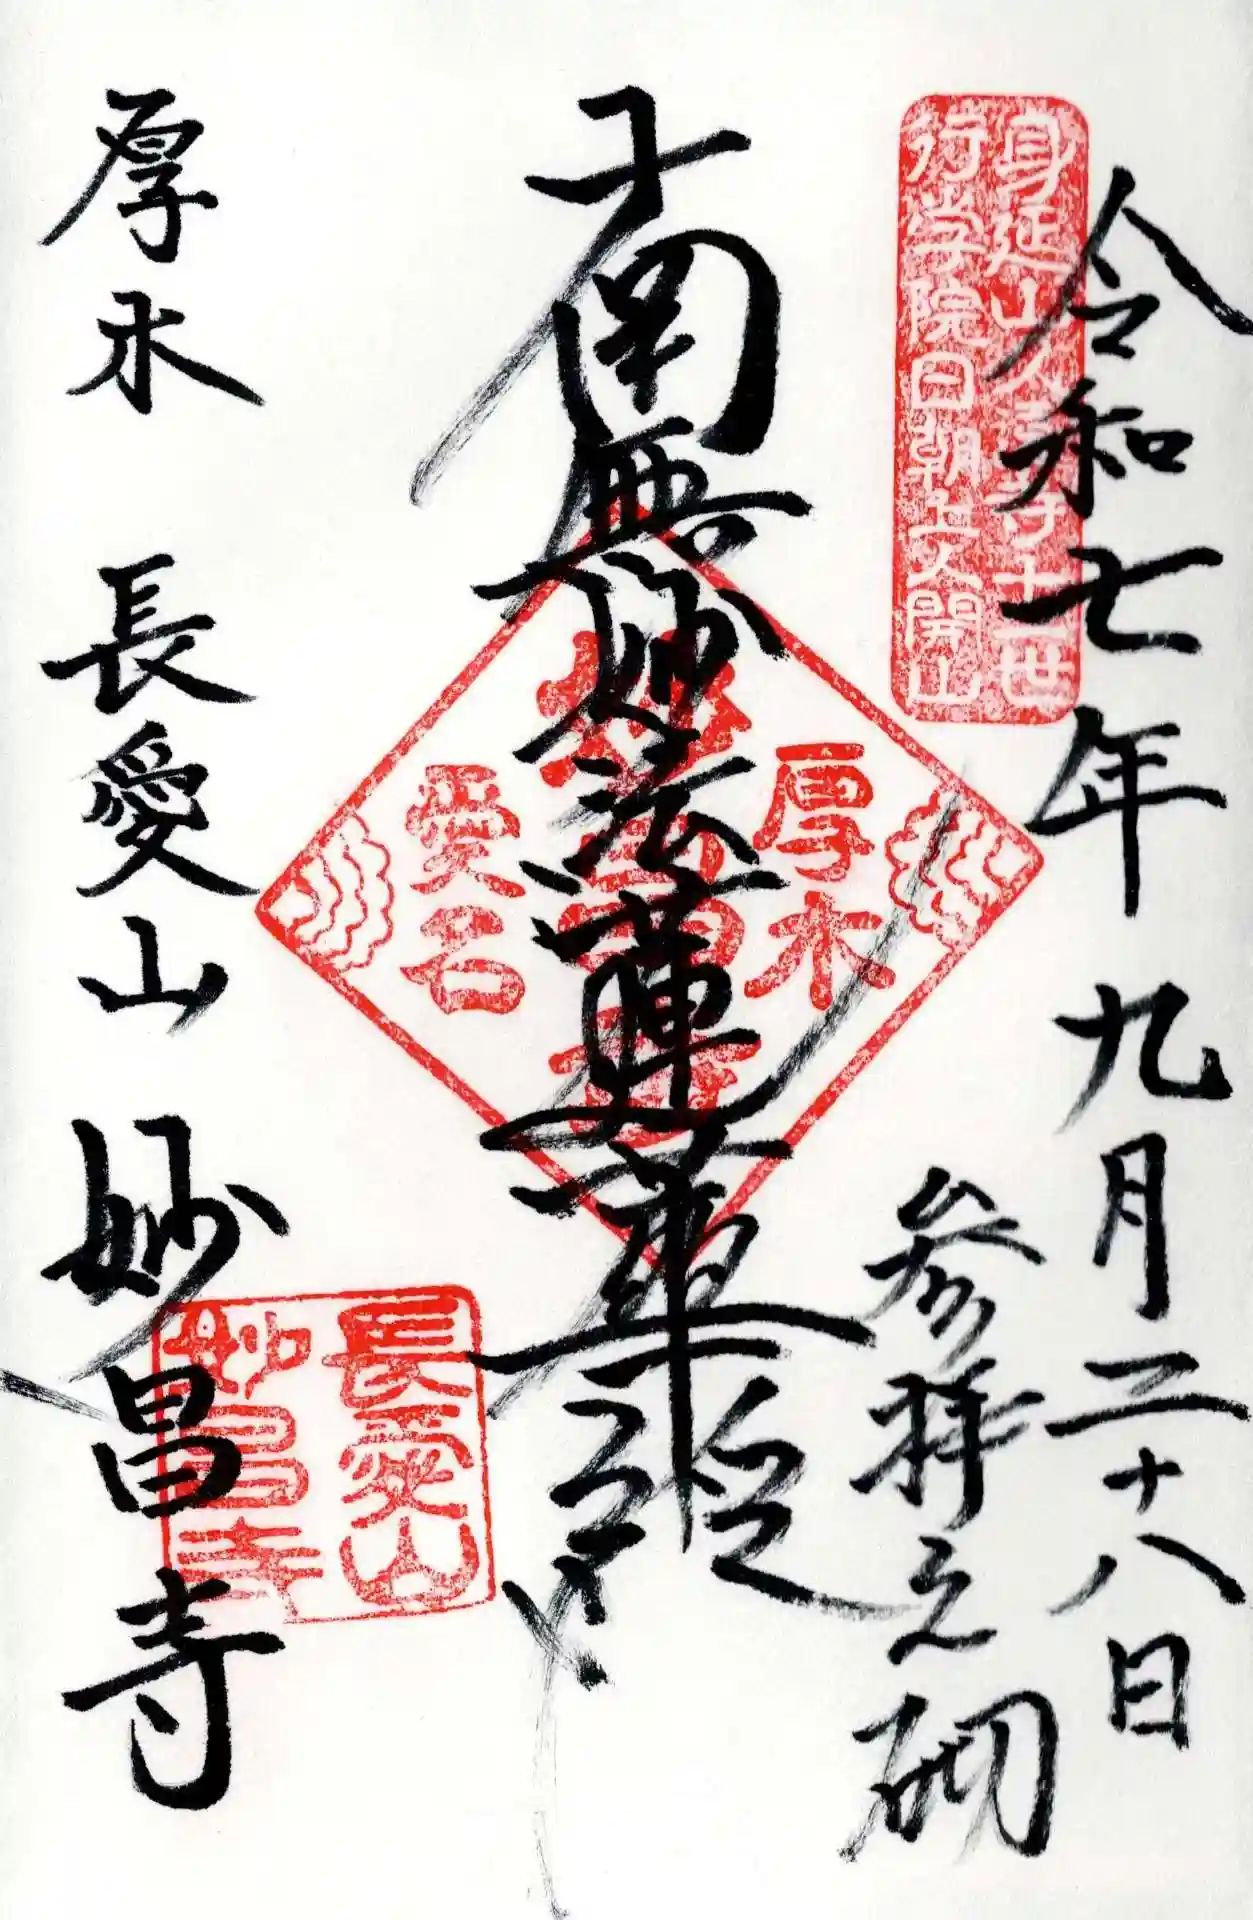 令和七年九月二十八日
参拝之砌
身延山久遠寺十一世
行学院日朝上人開山
南無妙法蓮華経
厚木
妙昌寺
愛名
長愛山
妙昌寺
厚木 長愛山 妙昌寺